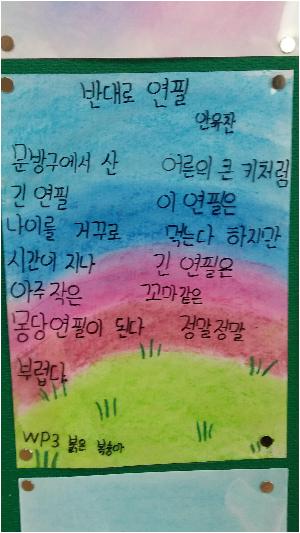 반대로 연필
안유찬
문방구에서 산 어른의 큰 키처럼
긴 연필 이 연필은
나이를 거꾸로 먹는다 하지만
시간이 지나 긴 연필은
아주 작은 꼬마같은
몽당연필이 된다 정말정말
부럽다
WP3 붉은 복숭아